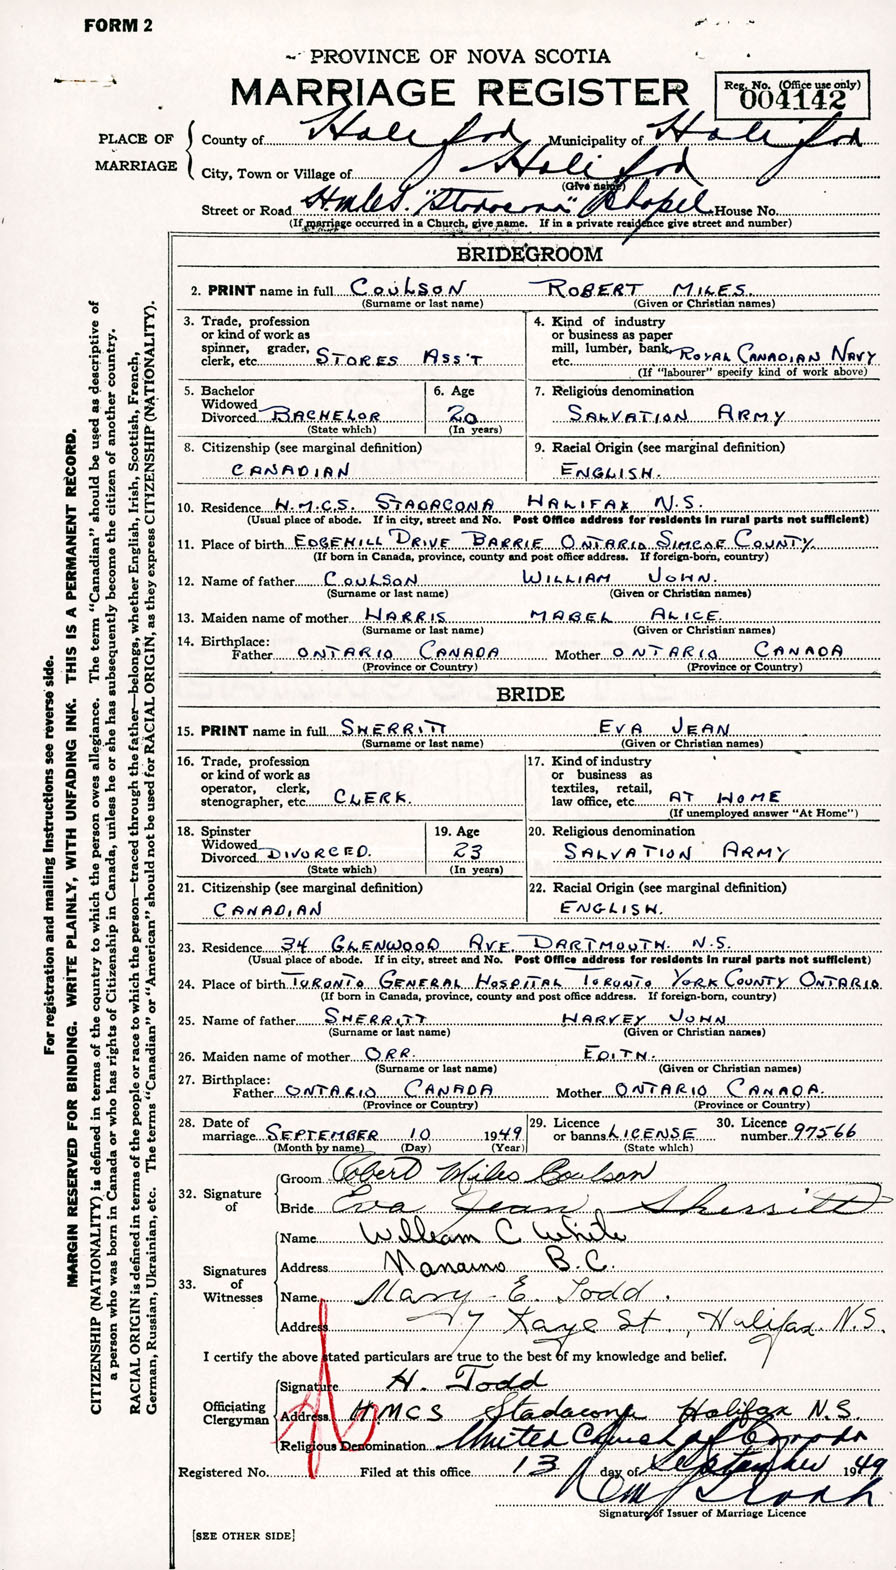 FORM 2
PROVINCE OF NOVA SCOTIA
MARRIAGE REGISTER
Reg. No. (Office use only)
004142
PLACE OF MARRIAGE
County of Halifax Municipality of Halifax
City, Town or Village of Halifax
(Give name)
Street or Road H.M.C.S. "Stadacona" Chapel House No.
(If marriage occurred in a Church, give name. If in a private residence give street and number)
BRIDEGROOM
2. PRINT name in full COULSON ROBERT MILES.
(Surname or last name) (Given or Christian names)
3. Trade, profession or kind of work as spinner, grader, clerk, etc. STORES ASS'T
4. Kind of industry or business as paper mill, lumber, bank, etc. ROYAL CANADIAN NAVY
(If "labourer" specify kind of work above)
5. Bachelor Widowed Divorced BACHELOR
(State which)
6. Age 20
(In years)
7. Religious denomination
SALVATION ARMY
8. Citizenship (see marginal definition)
CANADIAN
9. Racial Origin (see marginal definition)
ENGLISH.
10. Residence H.M.C.S. STADACONA HALIFAX N.S.
(Usual place of abode. If in city, street and No. Post Office address for residents in rural parts not sufficient)
11. Place of birth EDGEHILL DRIVE BARRIE ONTARIO SIMCOE COUNTY.
(If born in Canada, province, county and post office address. If foreign-born, country)
12. Name of father COULSON WILLIAM JOHN.
(Surname or last name) (Given or Christian names)
13. Maiden name of mother HARRIS MABEL ALICE.
(Surname or last name) (Given or Christian names)
14. Birthplace:
Father ONTARIO CANADA Mother ONTARIO CANADA
(Province or Country) (Province or Country)
BRIDE
15. PRINT name in full SHERRITT EVA JEAN
(Surname or last name) (Given or Christian names)
16. Trade, profession or kind of work as operator, clerk, stenographer, etc. CLERK.
17. Kind of industry or business as textiles, retail, law office, etc. AT HOME
(If unemployed answer "At Home")
18. Spinster Widowed Divorced DIVORCED.
(State which)
19. Age 23
(In years)
20. Religious denomination
SALVATION ARMY
21. Citizenship (see marginal definition)
CANADIAN
22. Racial Origin (see marginal definition)
ENGLISH.
23. Residence 34 GLENWOOD AVE. DARTMOUTH. N.S.
(Usual place of abode. If in city, street and No. Post Office address for residents in rural parts not sufficient)
24. Place of birth TORONTO GENERAL HOSPITAL TORONTO YORK COUNTY ONTARIO
(If born in Canada, province, county and post office address. If foreign-born, country)
25. Name of father SHERRITT HARVEY JOHN
(Surname or last name) (Given or Christian names)
26. Maiden name of mother ORR. EDITH.
(Surname or last name) (Given or Christian names)
27. Birthplace:
Father ONTARIO CANADA Mother ONTARIO CANADA.
(Province or Country) (Province or Country)
28. Date of marriage SEPTEMBER 10 1949
(Month by name) (Day) (Year)
29. Licence or banns LICENSE
(State which)
30. Licence number 97566
32. Signature of
Groom Robert Miles Coulson
Bride Eva Jean Sherritt
33. Signatures of Witnesses
Name William C White
Address Nanaimo B.C.
Name Mary E. Todd.
Address 47 Kaye St., Halifax. N.S.
I certify the above stated particulars are true to the best of my knowledge and belief.
Officiating Clergyman
Signature H. Todd
Address HMCS Stadacona Halifax N.S.
Religious Denomination United Church of Canada
Registered No. Filed at this office 13 day of September 1949
Signature of Issuer of Marriage Licence
[SEE OTHER SIDE]
For registration and mailing instructions see reverse side.
MARGIN RESERVED FOR BINDING. WRITE PLAINLY, WITH UNFADING INK. THIS IS A PERMANENT RECORD.
CITIZENSHIP (NATIONALITY) is defined in terms of the country to which the person owes allegiance. The term "Canadian" should be used as descriptive of
a person who was born in Canada or who has rights of Citizenship in Canada, unless he or she has subsequently become the citizen of another country.
RACIAL ORIGIN is defined in terms of the people or race to which the person—traced through the father—belongs, whether English, Irish, Scottish, French,
German, Russian, Ukrainian, etc. The terms "Canadian" or "American" should not be used for RACIAL ORIGIN, as they express CITIZENSHIP (NATIONALITY).